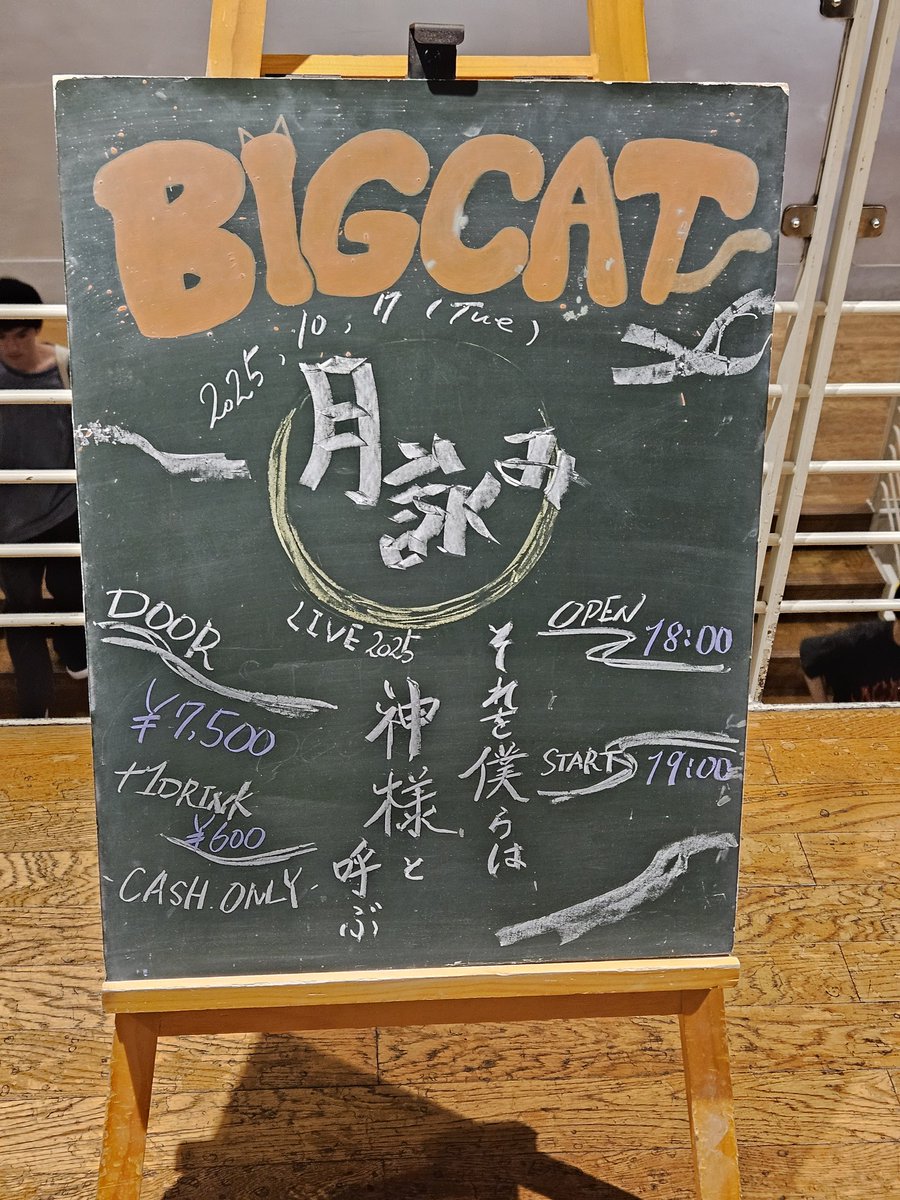 BIGCAT
2025, 10, 17 (Tue)
月詠み
LIVE 2025
それを僕らは
神様と
呼ぶ
DOOR
¥7,500
+1DRINK
¥600
-CASH ONLY-
OPEN 18:00
START 19:00